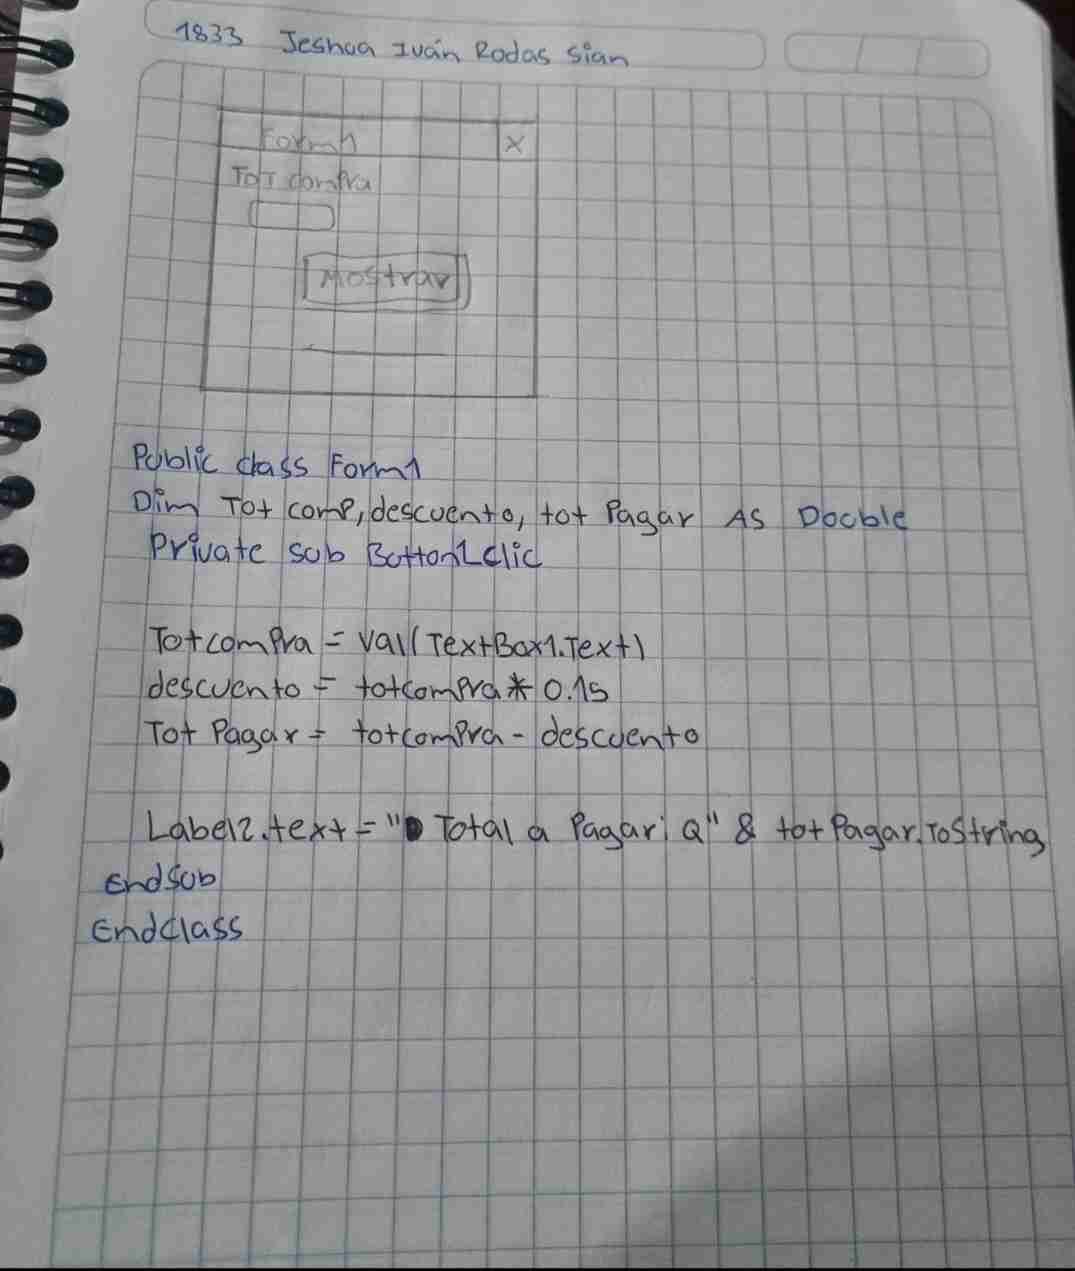 1833 Jeshua Iván Rodas Sian
Form1 X
Tot compra
Mostrar
Public class Form1
Dim Tot comp, descuento, tot Pagar As Double
Private sub Button1clic
Totcompra = val(TextBox1.Text)
descuento = totcompra * 0.15
Tot Pagar = totcompra - descuento
Label2.text = " Total a Pagar: Q" & totPagar.ToString
EndSub
EndClass